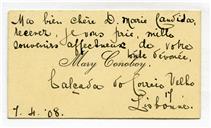 Ma bien chère D. Maria Candida,
recevez, je vous prie, mille
souvenirs affectueux de votre
toute dévouée,
Mary Conoboy.
Calçada do Correio Velho
Lisbonne.
7. 4. '08.